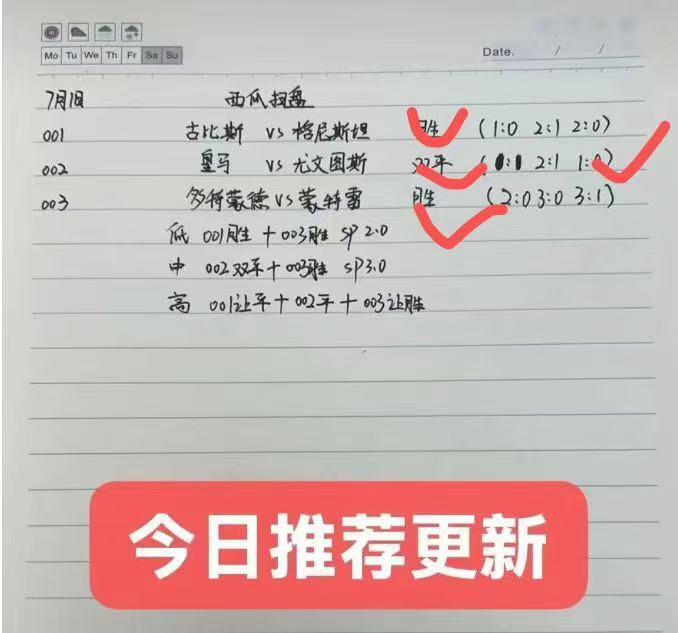 Mo Tu We Th Fr Sa Su
Date. / /
7月1日 西瓜扫盘
001 古比斯 VS 格尼斯坦 胜 (1:0 2:1 2:0)
002 皇马 VS 尤文图斯 双平 (1:1 2:1 1:0)
003 多特蒙德 VS 蒙特雷 胜 (2:0 3:0 3:1)
低 001胜 + 003胜 SP 2.0
中 002双平 + 003胜 SP3.0
高 001让平 + 002平 + 003让胜
今日推荐更新